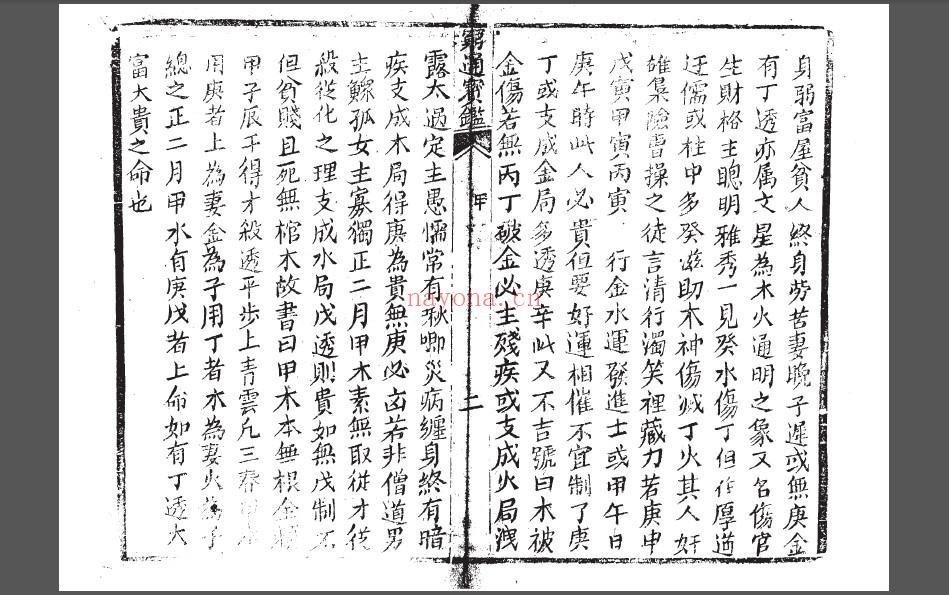 身弱富屋貧人終身勞苦妻晚子遲或無庚金
有丁透亦属文星為木火通明之象又名傷官
生財格主聰明雅秀一見癸水傷丁但作厚道
迂儒或柱中多癸滋助木神傷滅丁火其人奸
雄梟險曹操之徒言清行濁笑裡藏力若庚申
戊寅甲寅丙寅 行金水運發進士或甲午日
庚午時此人必貴但要好運相催不宜制了庚
丁或支成金局多透庚辛此又不吉號曰木被
金傷若無丙丁破金必主殘疾或支成火局洩
窮通寶鑑
甲
二
露太過定主愚懦常有秋唧災病纏身終有暗
疾支成木局得庚為貴無庚必凶若非僧道男
主鰥孤女主寡獨正二月甲木素無取從才從
殺從化之理支成水局戊透則貴如無戊制不
但貧賤且死無棺木故書曰甲木本無根全
甲子辰干得才殺透平步上青雲凡三春甲
用庚者上為妻金為子用丁者木為妻火為子
總之正二月甲水有庚戊者上命如有丁透大
富大貴之命也
nayona.cn